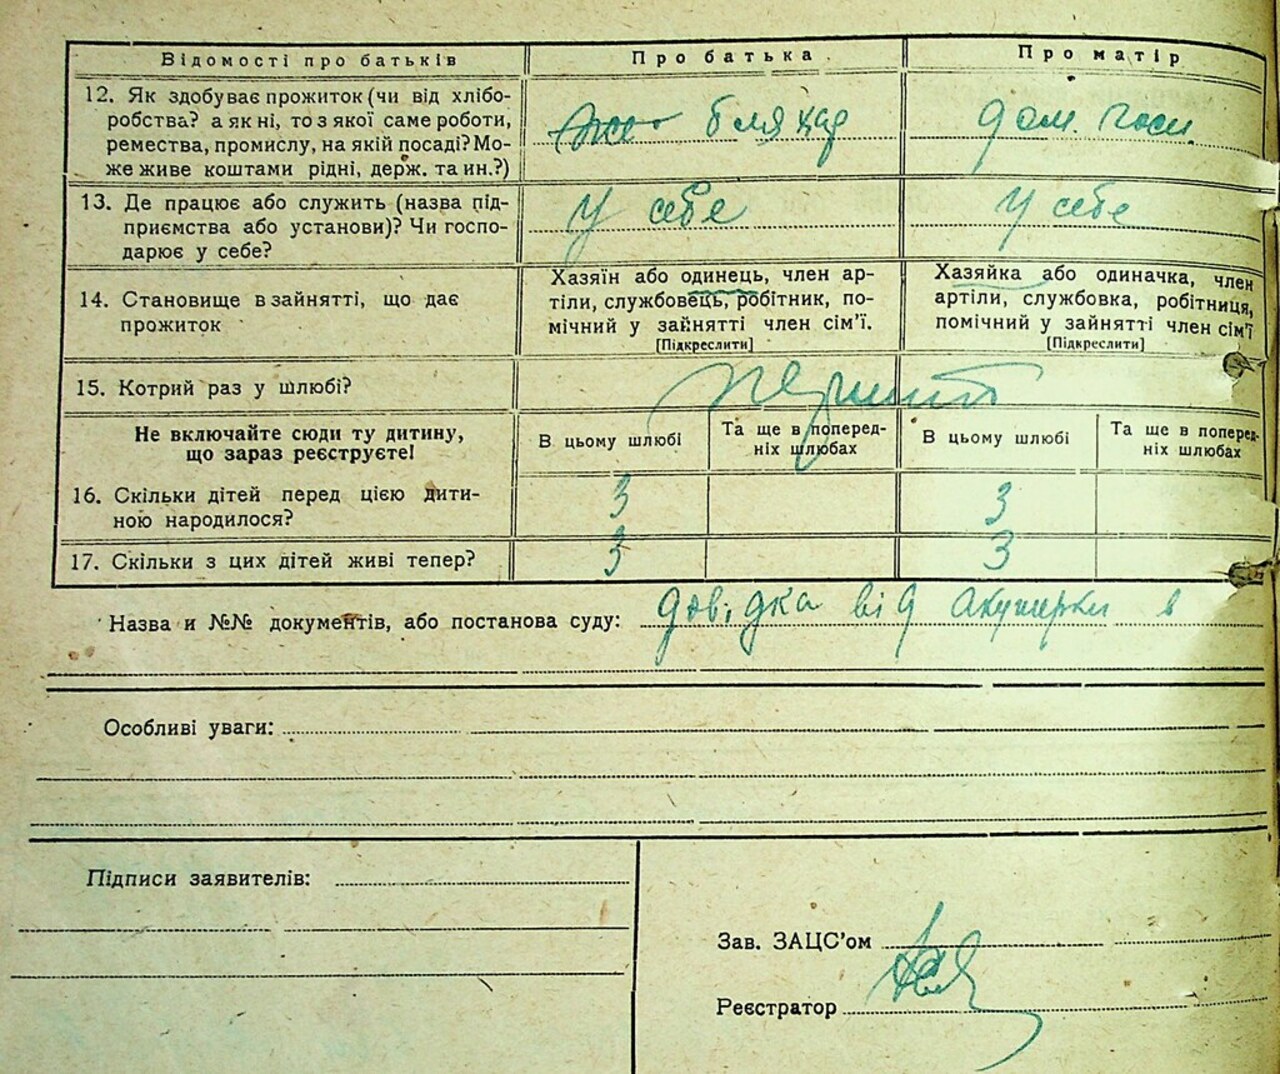 Відомості про батьків Про батька Про матір
12. Як здобуває прожиток (чи від хлібо- бляхар дом. госп.
робства? а як ні, то з якої саме роботи,
ремества, промислу, на якій посаді? Мо-
же живе коштами рідні, держ. та ин.?)
13. Де працює або служить (назва під- У себе У себе
приємства або установи)? Чи госпо-
дарює у себе?
14. Становище в зайнятті, що дає
прожиток
Хазяїн або одинець, член ар-
тіли, службовець, робітник, по-
мічний у зайнятті член сім’ї.
[Підкреслити]
Хазяйка або одиначка, член
артіли, службовка, робітниця,
помічний у зайнятті член сім’ї
[Підкреслити]
15. Котрий раз у шлюбі? перший
Не включайте сюди ту дитину,
що зараз реєструєте!
В цьому шлюбі
Та ще в поперед-
ніх шлюбах
В цьому шлюбі
Та ще в поперед-
ніх шлюбах
16. Скільки дітей перед цією дити-
ною народилося? 3 3
17. Скільки з цих дітей живі тепер? 3 3
Назва и №№ документів, або постанова суду: довідка від акушерки в
Особливі уваги:
Підписи заявителів:
Зав. ЗАЦС’ом
Реєстратор